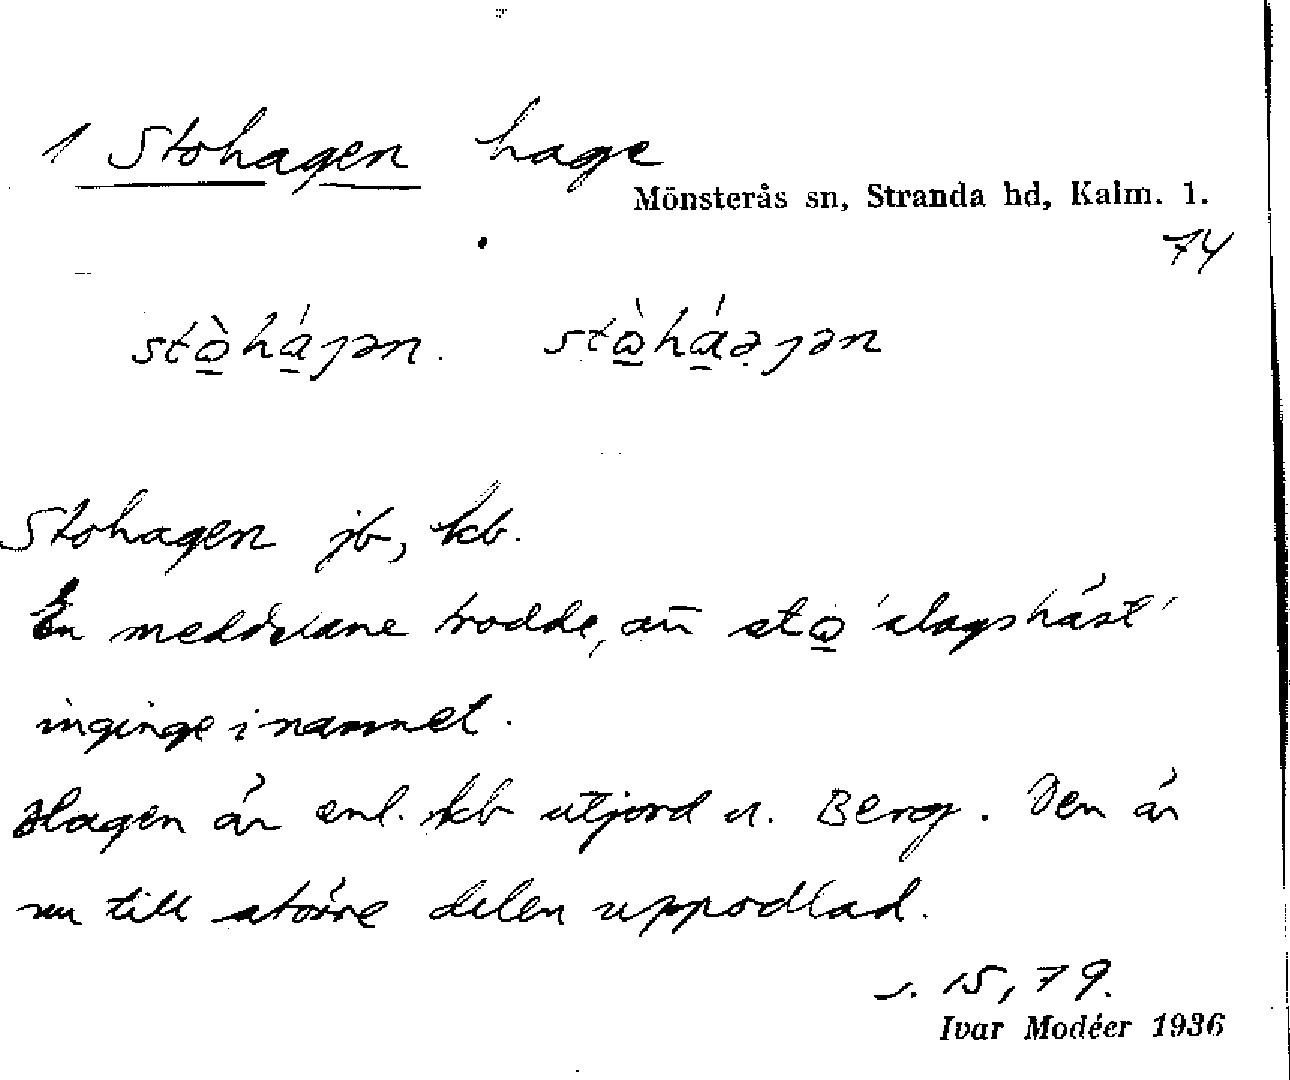 1 Stohagen hage
Mönsterås sn, Stranda hd, Kalm. l.
74
stὼ̲hά̲ȷən. stὼ̲hά̲ə̣ȷən
Stohagen jb, kb.
En meddelare trodde, att stω̲ 'slagshäst'
inginge i namnet.
Hagen är enl. kb utjord u. Berg. Den är
nu till större delen uppodlad.
s. 15, 79.
Ivar Modéer 1936